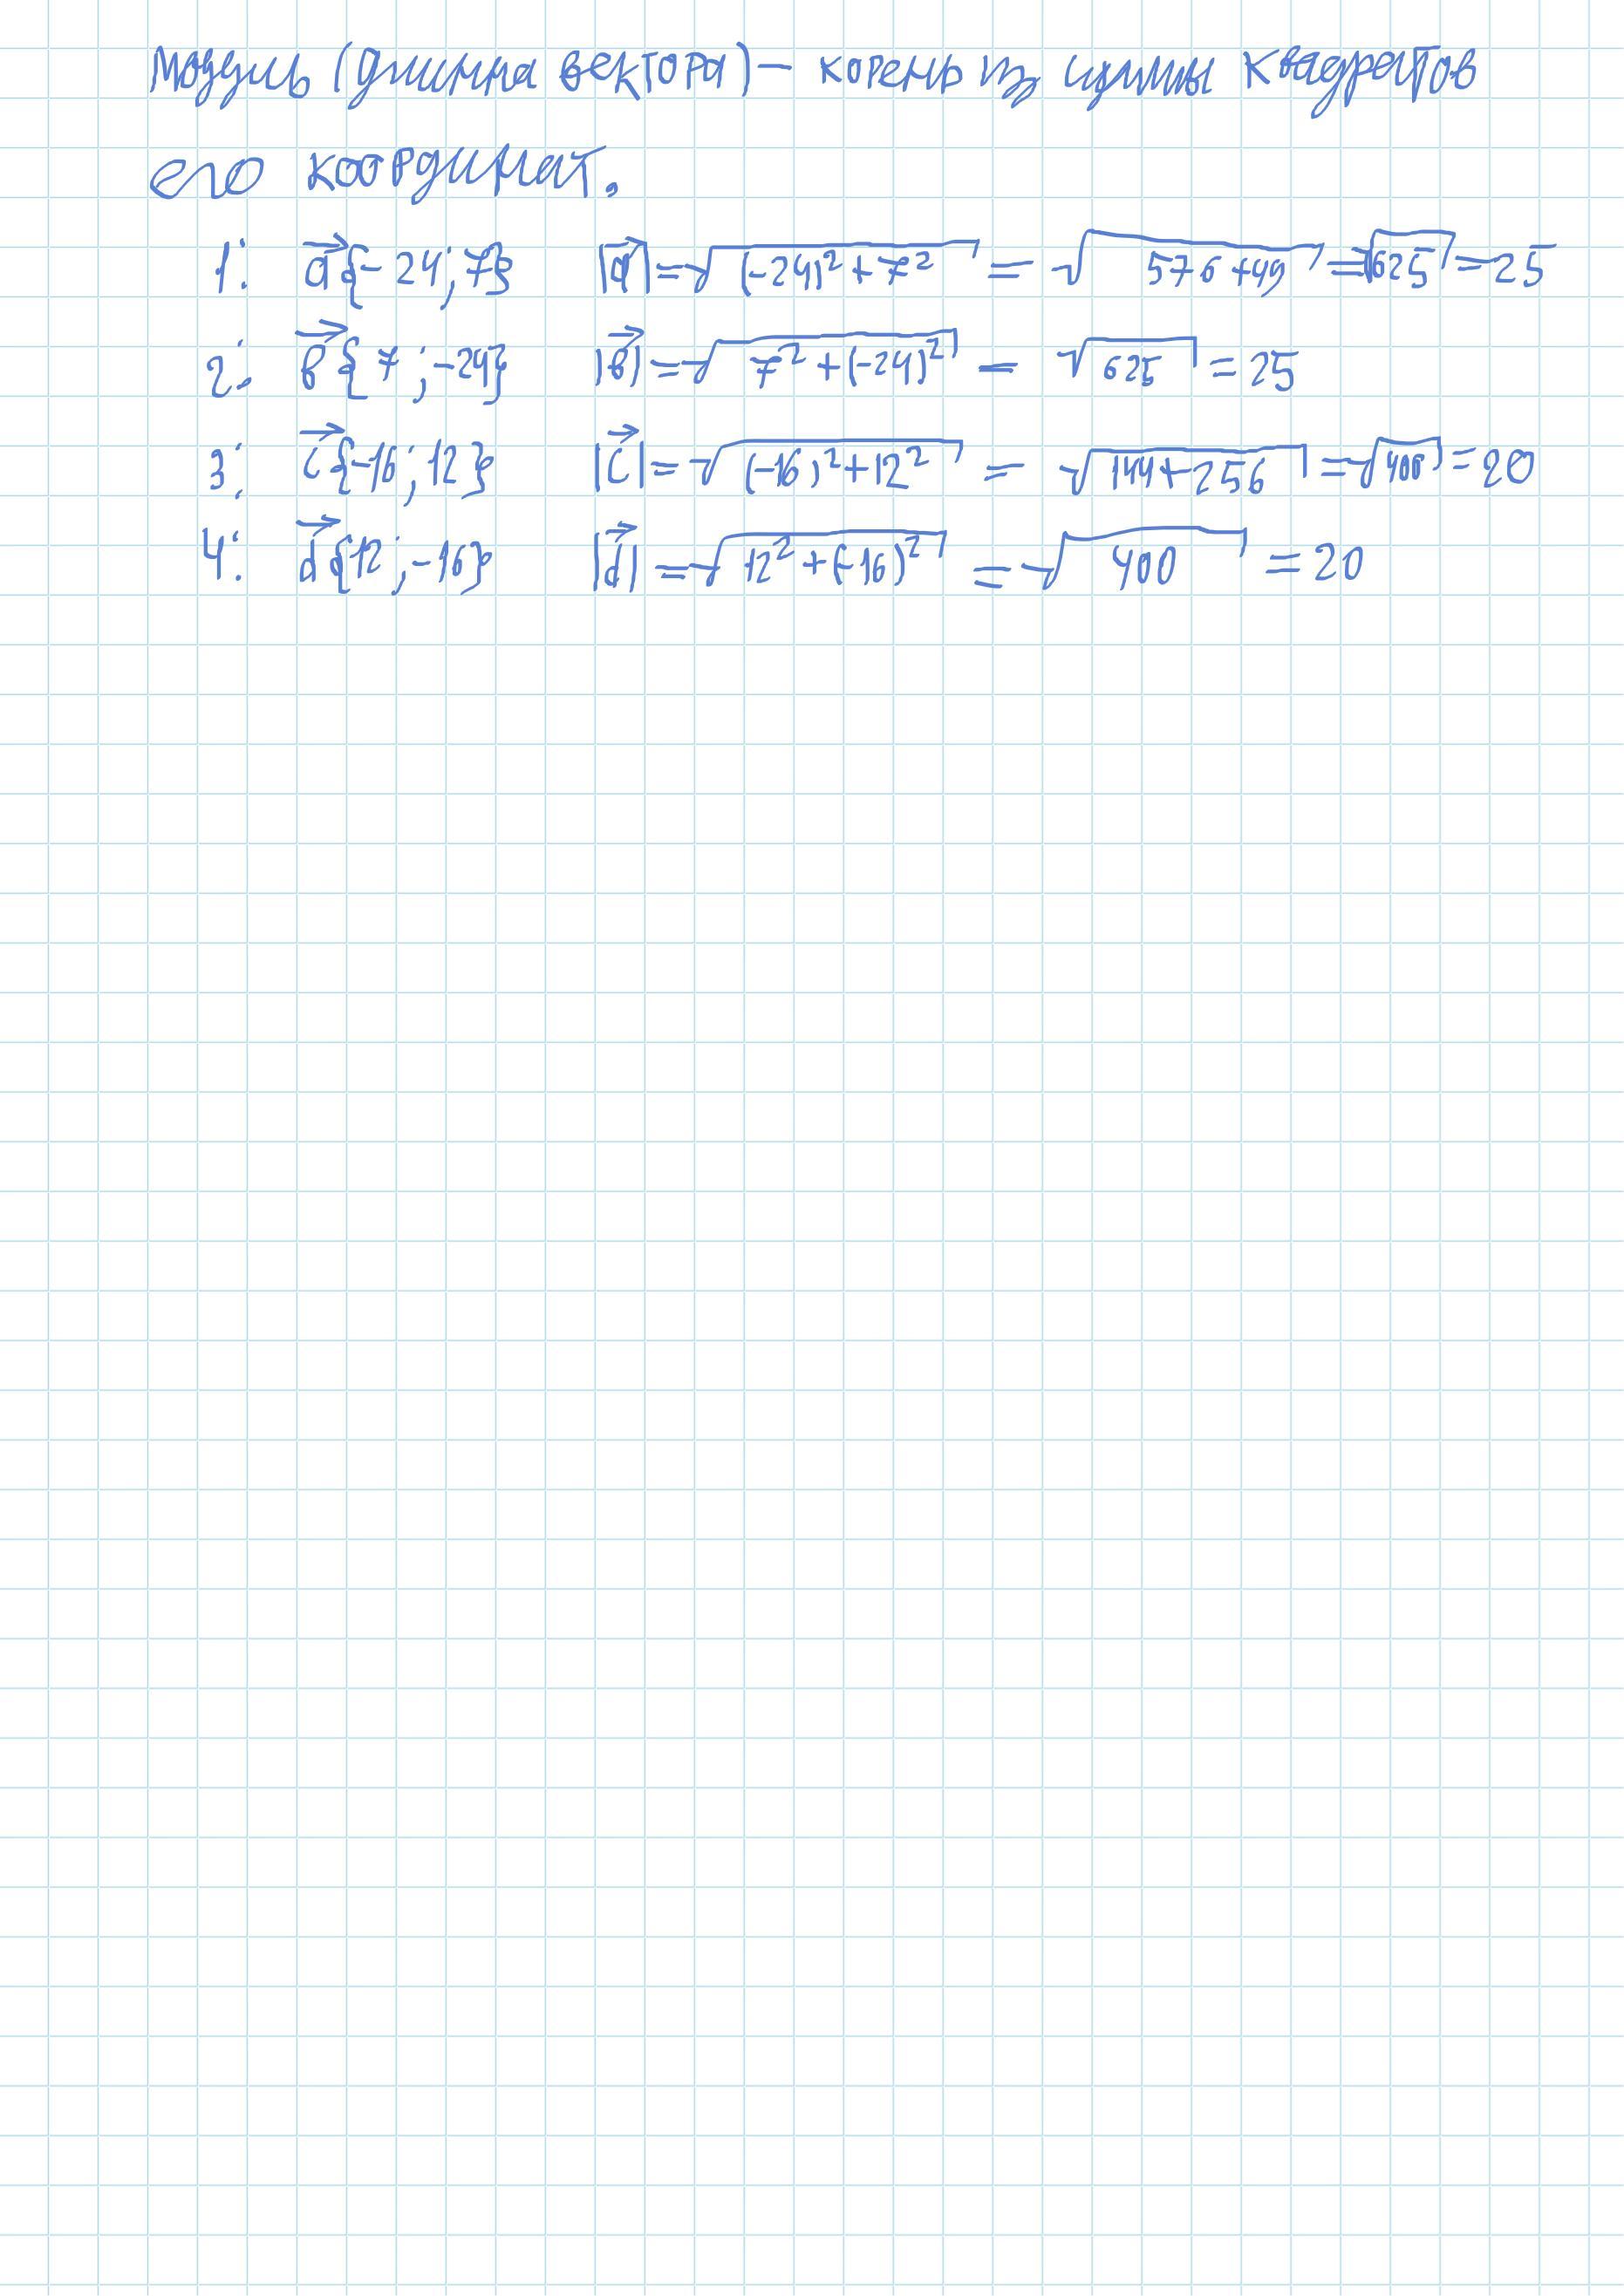 Модуль (длинна вектора) – корень из суммы квадратов
его координат.
1: a⃗{-24; 7} |a⃗| = √((-24)² + 7²) = √(576 + 49) = √625 = 25
2: в⃗{7; -24} |в⃗| = √(7² + (-24)²) = √625 = 25
3: c⃗{-16; 12} |c⃗| = √((-16)² + 12²) = √(144 + 256) = √400 = 20
4: d⃗{12; -16} |d⃗| = √(12² + (-16)²) = √400 = 20